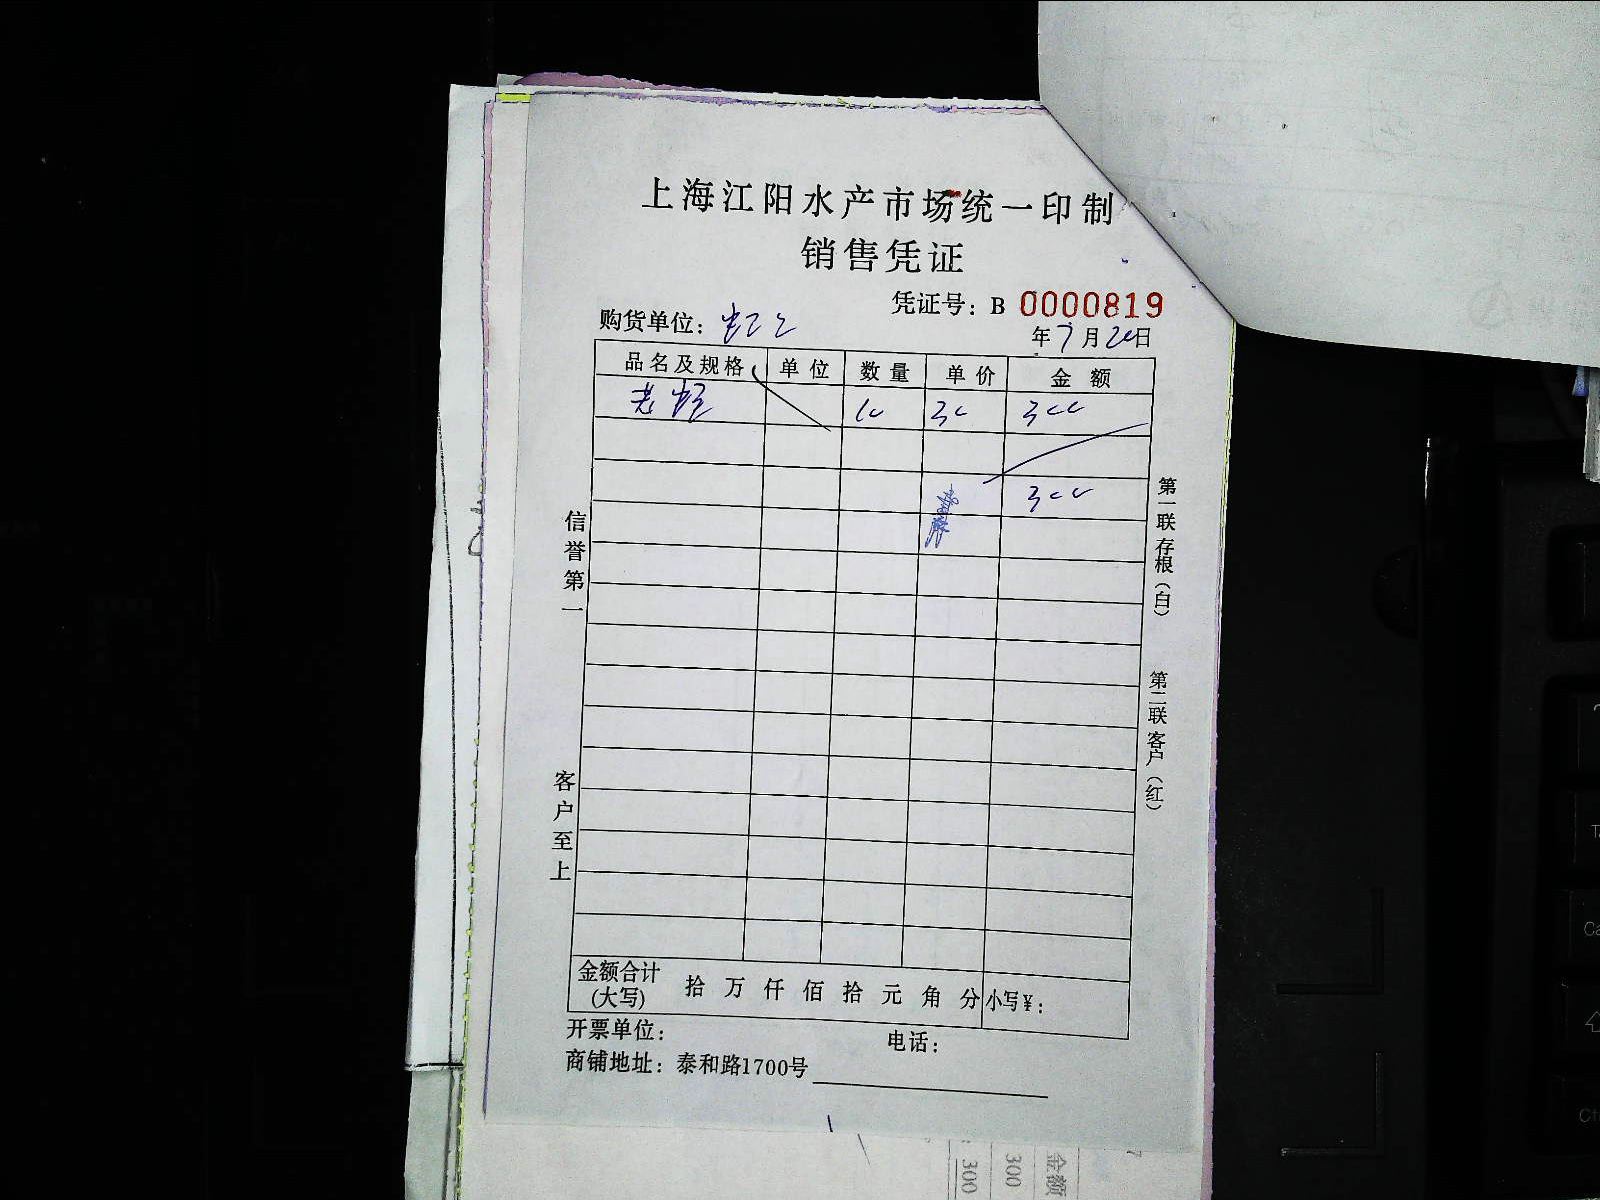 上海江阳水产市场统一印制
销售凭证
凭证号：B 0000819
购货单位：
年7月20日
品名及规格 单位 数量 单价 金额
老虾 10 30 300
300
信誉第一
客户至上
第一联存根（白）
第二联客户（红）
金额合计（大写） 拾 万 仟 佰 拾 元 角 分 小写￥：
开票单位： 电话：
商铺地址：泰和路1700号
金额
300
300